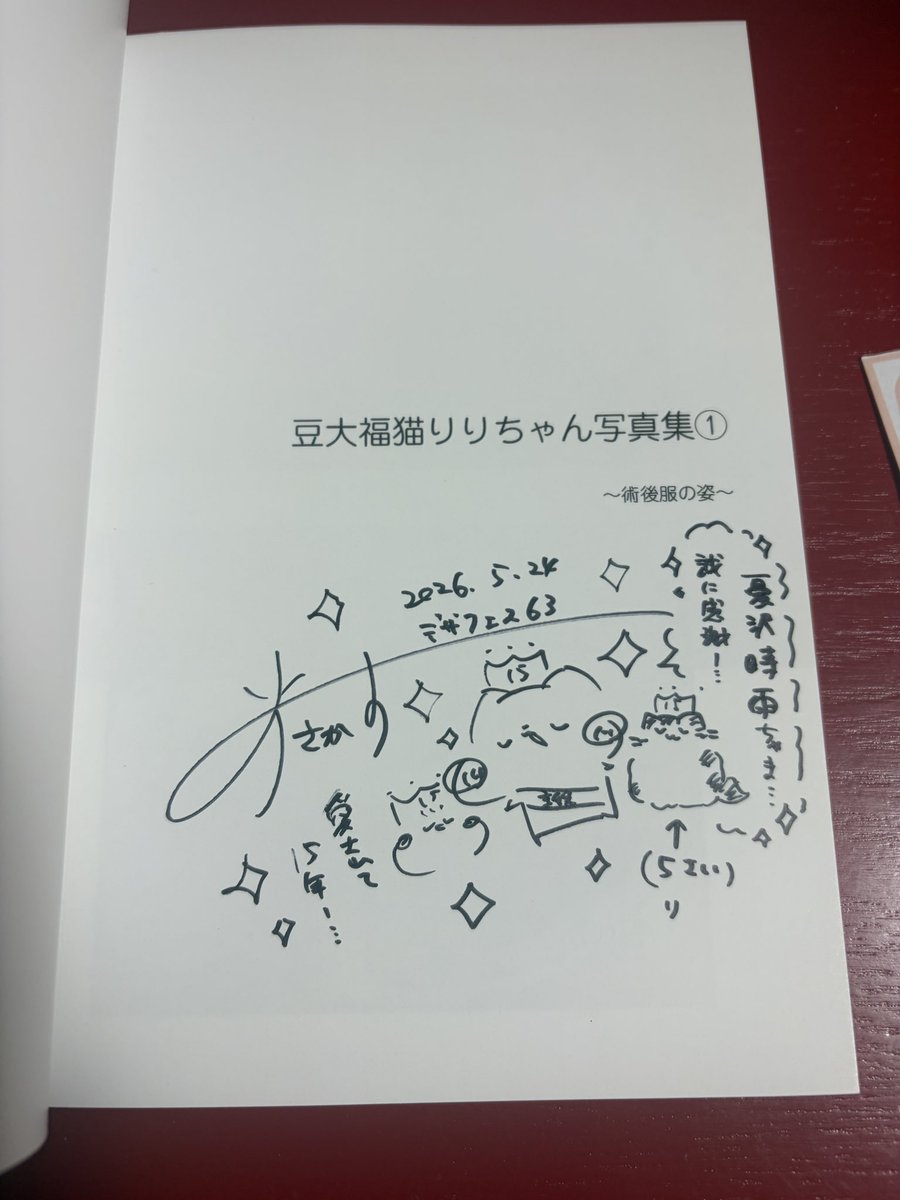 豆大福猫りりちゃん写真集①
～術後服の姿～
2026.5.24
デザフェス63
憂沢時雨ちゃま…
誠に感謝!…
15
さかり
15
15
15年!…
↑
(5さい)
り